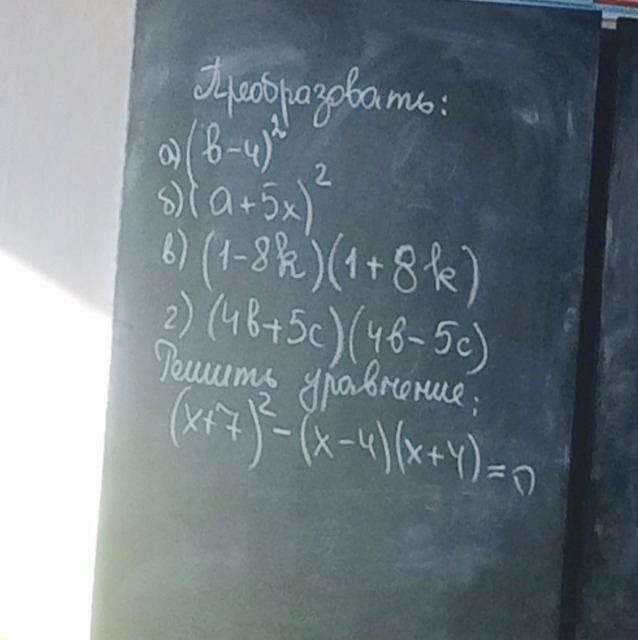 Преобразовать:
а) (в-4)²
б) (а+5х)²
в) (1-8k)(1+8k)
г) (4в+5с)(4в-5с)
Решить уравнение:
(х+7)²-(х-4)(х+4)=0